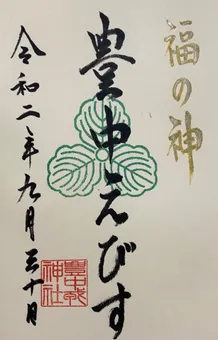 福の神
豊中えびす
令和二年九月三十日
豊中戎
神社